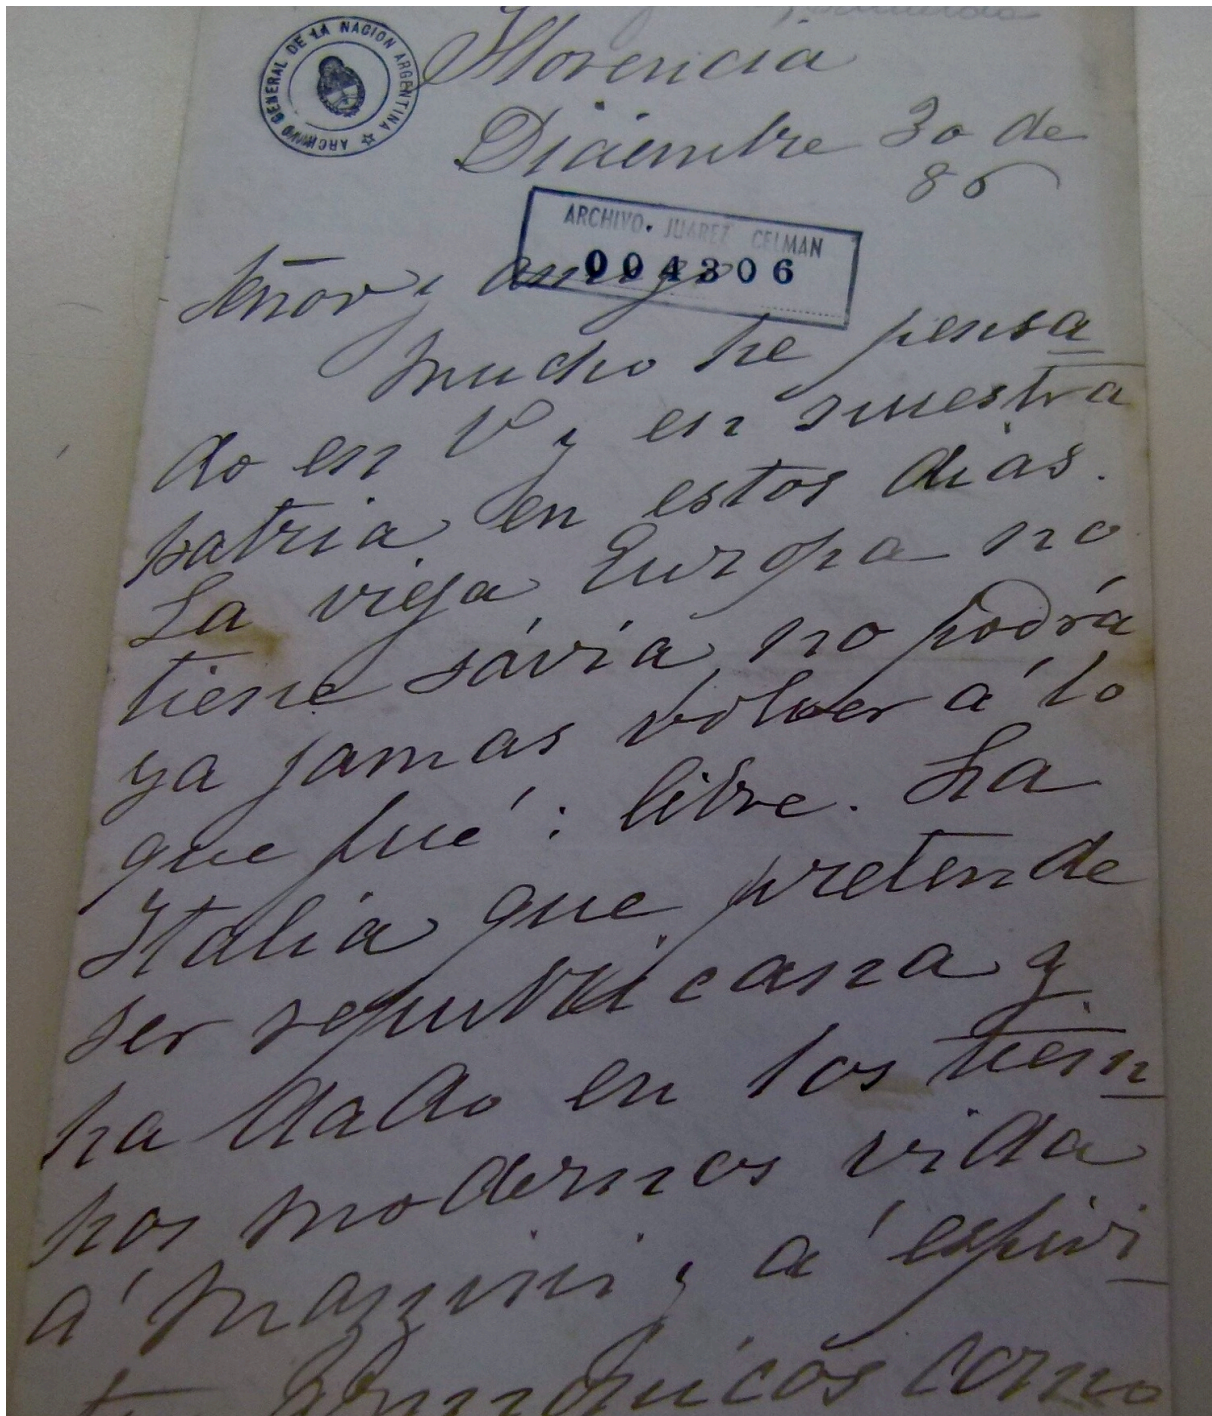 ARCHIVO GENERAL DE LA NACION ARGENTINA
Florencia
Diciembre 30 de
86
ARCHIVO. JUAREZ CELMAN
004306
Señor y amigo
Mucho he pensa
do en V y en nuestra
patria en estos dias.
La vieja Europa no
tiene sávia, no podrá
ya jamas volver á lo
que fué: libre. La
Italia que pretende
ser republicana y
ha dado en los tiem
pos modernos vida
á Mazzini y á espiri
como